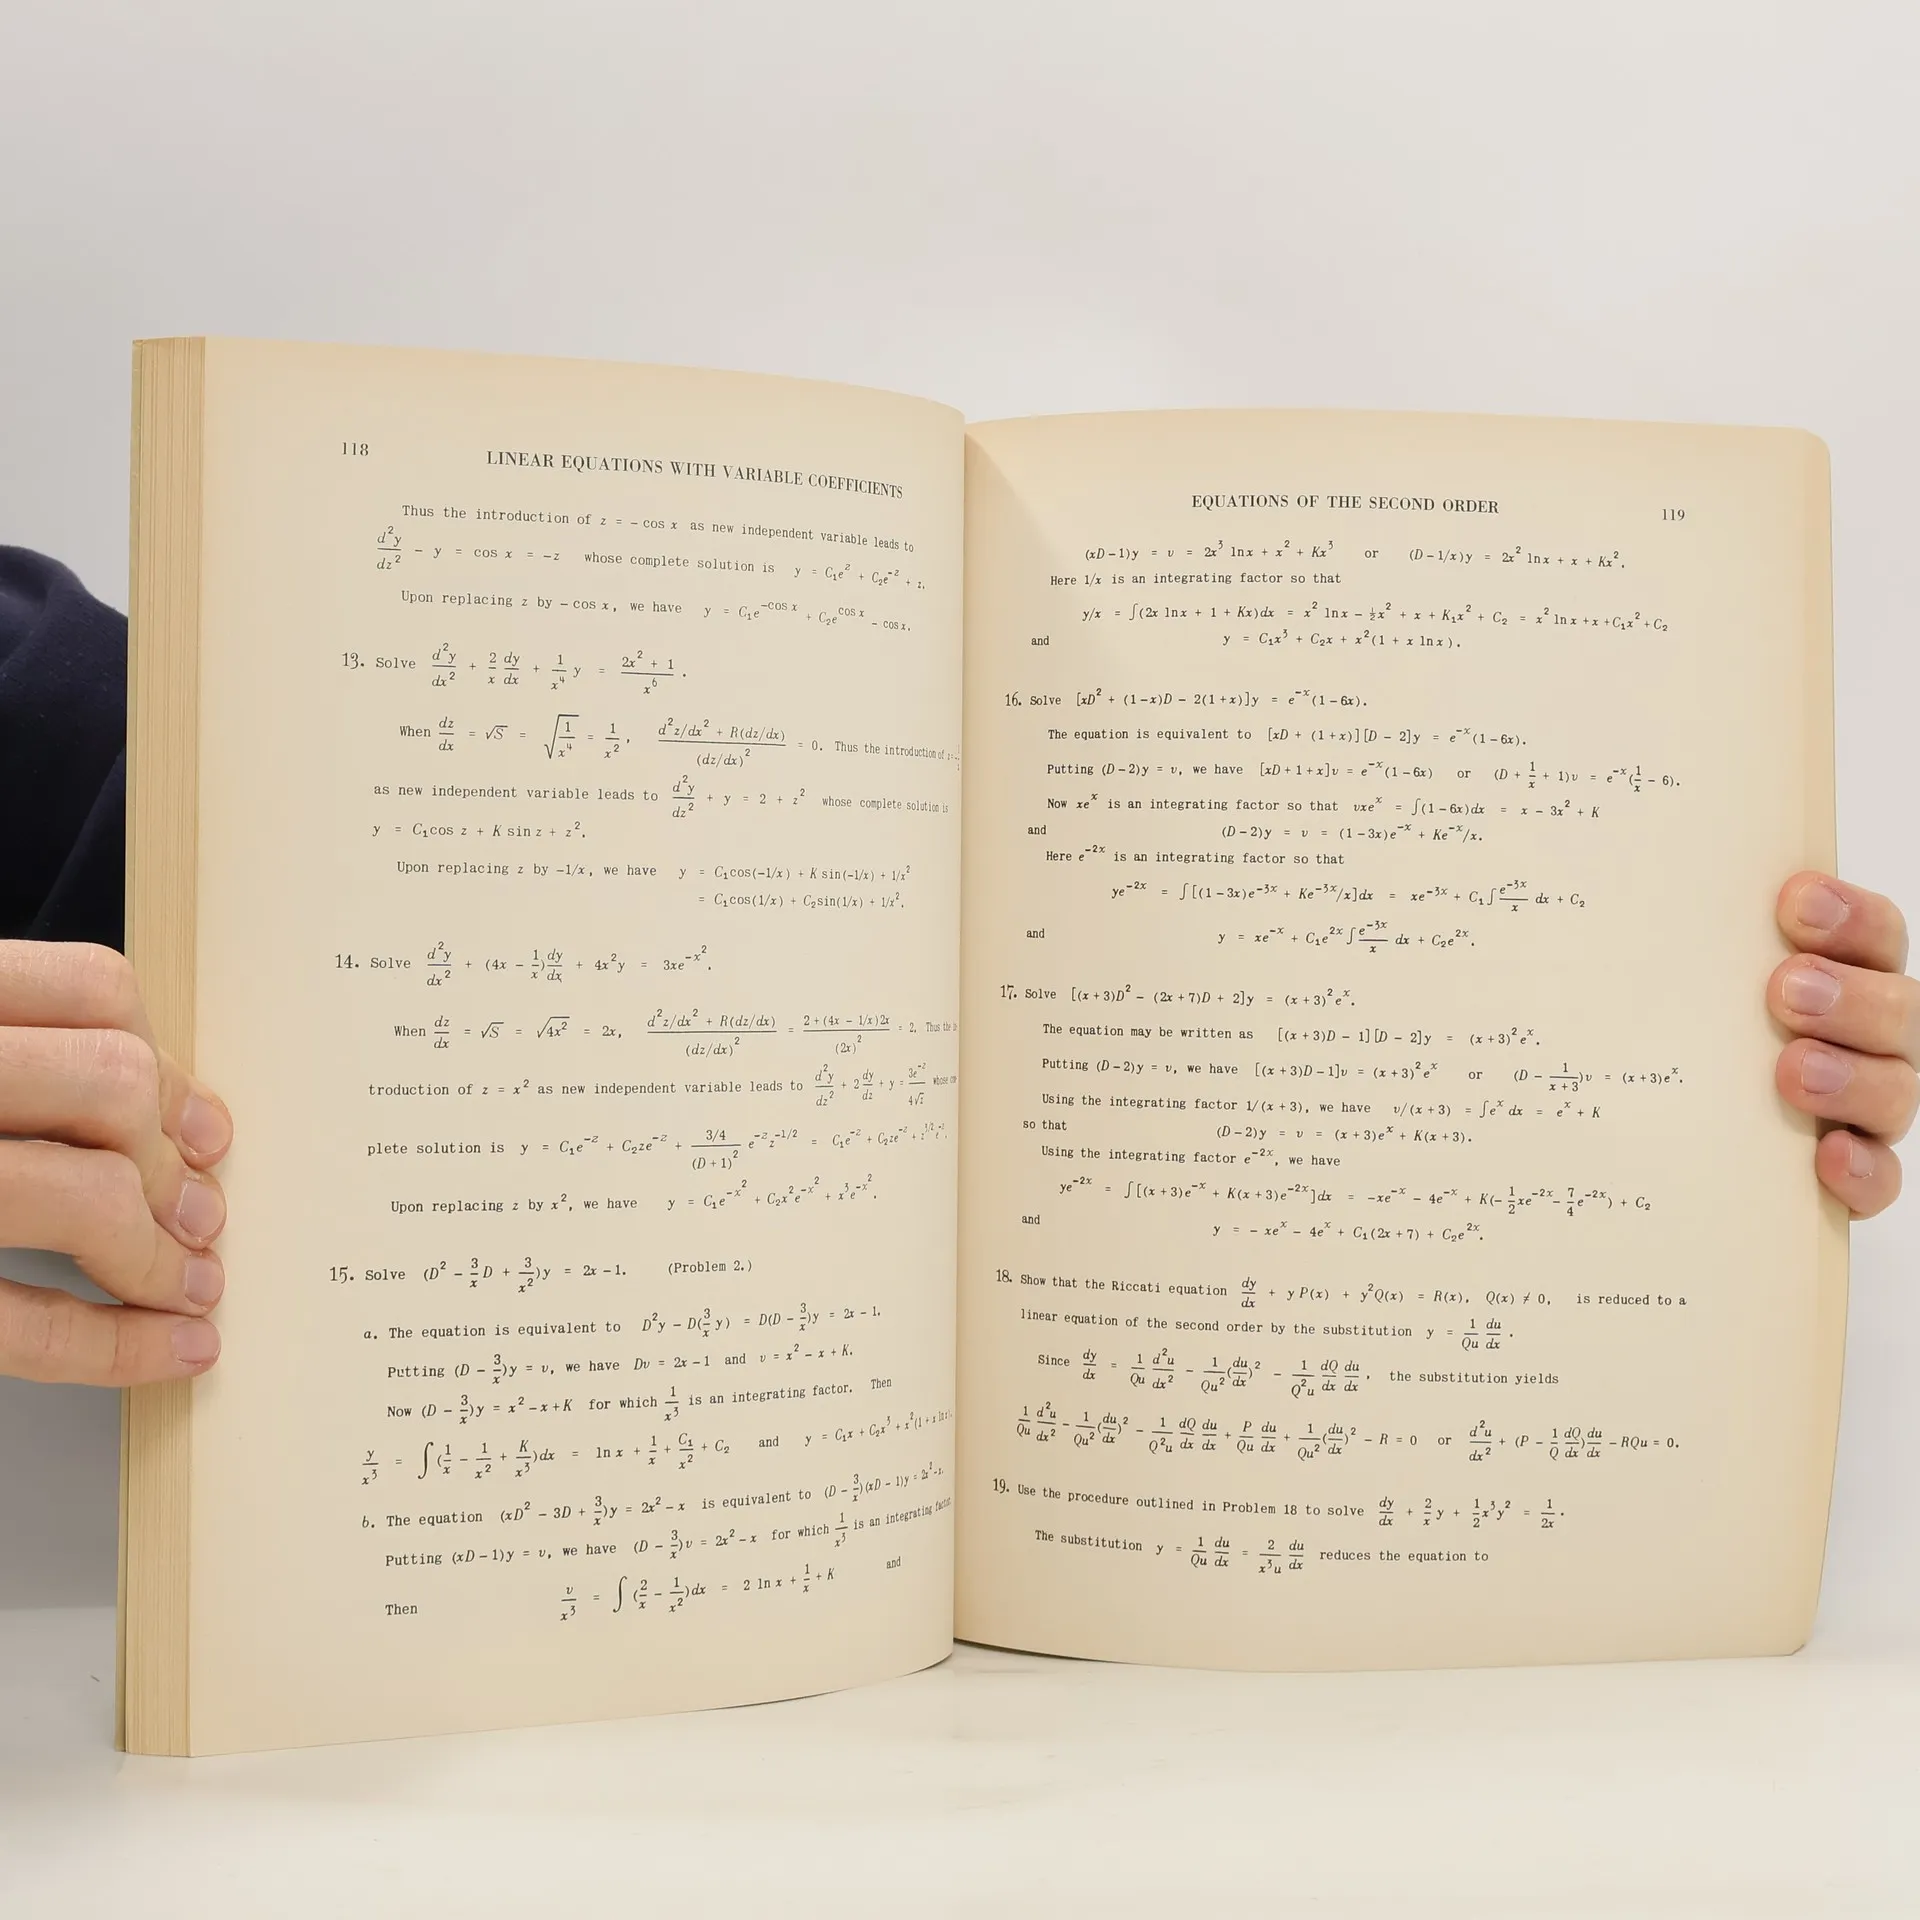 118
LINEAR EQUATIONS WITH VARIABLE COEFFICIENTS
Thus the introduction of z = – cos x as new independent variable leads to
d²y/dz² – y = cos x = –z whose complete solution is y = C₁e^z + C₂e^–z + z.
Upon replacing z by – cos x, we have y = C₁e^–cos x + C₂e^cos x – cos x.
13. Solve d²y/dx² + 2/x dy/dx + 1/x⁴ y = (2x² + 1)/x⁶ .
When dz/dx = √S = √(1/x⁴) = 1/x², (d²z/dx² + R(dz/dx))/(dz/dx)² = 0. Thus the introduction of
as new independent variable leads to d²y/dz² + y = 2 + z² whose complete solution is
y = C₁cos z + K sin z + z².
Upon replacing z by –1/x, we have y = C₁cos(–1/x) + K sin(–1/x) + 1/x²
= C₁cos(1/x) + C₂sin(1/x) + 1/x².
14. Solve d²y/dx² + (4x – 1/x)dy/dx + 4x²y = 3xe^–x² .
When dz/dx = √S = √4x² = 2x, (d²z/dx² + R(dz/dx))/(dz/dx)² = (2 + (4x – 1/x)2x)/(2x)² = 2. Thus the in-
troduction of z = x² as new independent variable leads to d²y/dz² + 2 dy/dz + y = 3e^–z/4√z whose com-
plete solution is y = C₁e^–z + C₂ze^–z + (3/4)/(D+1)² e^–z z^–1/2 = C₁e^–z + C₂ze^–z + z^3/2 e^–z.
Upon replacing z by x², we have y = C₁e^–x² + C₂x²e^–x² + x³e^–x².
15. Solve (D² – 3/x D + 3/x²)y = 2x – 1. (Problem 2.)
a. The equation is equivalent to D²y – D(3/x y) = D(D – 3/x)y = 2x – 1.
Putting (D – 3/x)y = v, we have Dv = 2x – 1 and v = x² – x + K.
Now (D – 3/x)y = x² – x + K for which 1/x³ is an integrating factor. Then
y/x³ = ∫(1/x – 1/x² + K/x³)dx = ln x + 1/x + C₁/x² + C₂ and y = C₁x + C₂x³ + x²(1 + x ln x).
b. The equation (xD² – 3D + 3/x)y = 2x² – x is equivalent to (D – 3/x)(xD – 1)y = 2x² – x.
Putting (xD – 1)y = v, we have (D – 3/x)v = 2x² – x for which 1/x³ is an integrating factor.
Then v/x³ = ∫(2/x – 1/x²)dx = 2 ln x + 1/x + K and
EQUATIONS OF THE SECOND ORDER
119
(xD – 1)y = v = 2x³ ln x + x² + Kx³ or (D – 1/x)y = 2x² ln x + x + Kx².
Here 1/x is an integrating factor so that
y/x = ∫(2x ln x + 1 + Kx)dx = x² ln x – ½x² + x + K₁x² + C₂ = x² ln x + x + C₁x² + C₂
and y = C₁x³ + C₂x + x²(1 + x ln x).
16. Solve [xD² + (1 – x)D – 2(1 + x)]y = e^–x(1 – 6x).
The equation is equivalent to [xD + (1 + x)][D – 2]y = e^–x(1 – 6x).
Putting (D – 2)y = v, we have [xD + 1 + x]v = e^–x(1 – 6x) or (D + 1/x + 1)v = e^–x(1/x – 6).
Now xe^x is an integrating factor so that vxe^x = ∫(1 – 6x)dx = x – 3x² + K
and (D – 2)y = v = (1 – 3x)e^–x + Ke^–x/x.
Here e^–2x is an integrating factor so that
ye^–2x = ∫[(1 – 3x)e^–3x + Ke^–3x/x]dx = xe^–3x + C₁∫e^–3x/x dx + C₂
and y = xe^–x + C₁e^2x ∫e^–3x/x dx + C₂e^2x.
17. Solve [(x + 3)D² – (2x + 7)D + 2]y = (x + 3)²e^x.
The equation may be written as [(x + 3)D – 1][D – 2]y = (x + 3)²e^x.
Putting (D – 2)y = v, we have [(x + 3)D – 1]v = (x + 3)²e^x or (D – 1/(x + 3))v = (x + 3)e^x.
Using the integrating factor 1/(x + 3), we have v/(x + 3) = ∫e^x dx = e^x + K
so that (D – 2)y = v = (x + 3)e^x + K(x + 3).
Using the integrating factor e^–2x, we have
ye^–2x = ∫[(x + 3)e^–x + K(x + 3)e^–2x]dx = –xe^–x – 4e^–x + K(–1/2 xe^–2x – 7/4 e^–2x) + C₂
and y = – xe^x – 4e^x + C₁(2x + 7) + C₂e^2x.
18. Show that the Riccati equation dy/dx + y P(x) + y²Q(x) = R(x), Q(x) ≠ 0, is reduced to a
linear equation of the second order by the substitution y = 1/Qu du/dx .
Since dy/dx = 1/Qu d²u/dx² – 1/Qu² (du/dx)² – 1/Q²u dQ/dx du/dx , the substitution yields
1/Qu d²u/dx² – 1/Qu² (du/dx)² – 1/Q²u dQ/dx du/dx + P/Qu du/dx + 1/Qu² (du/dx)² – R = 0 or d²u/dx² + (P – 1/Q dQ/dx)du/dx – RQu = 0.
19. Use the procedure outlined in Problem 18 to solve dy/dx + 2/x y + 1/2 x³y² = 1/2x .
The substitution y = 1/Qu du/dx = 2/x³u du/dx reduces the equation to